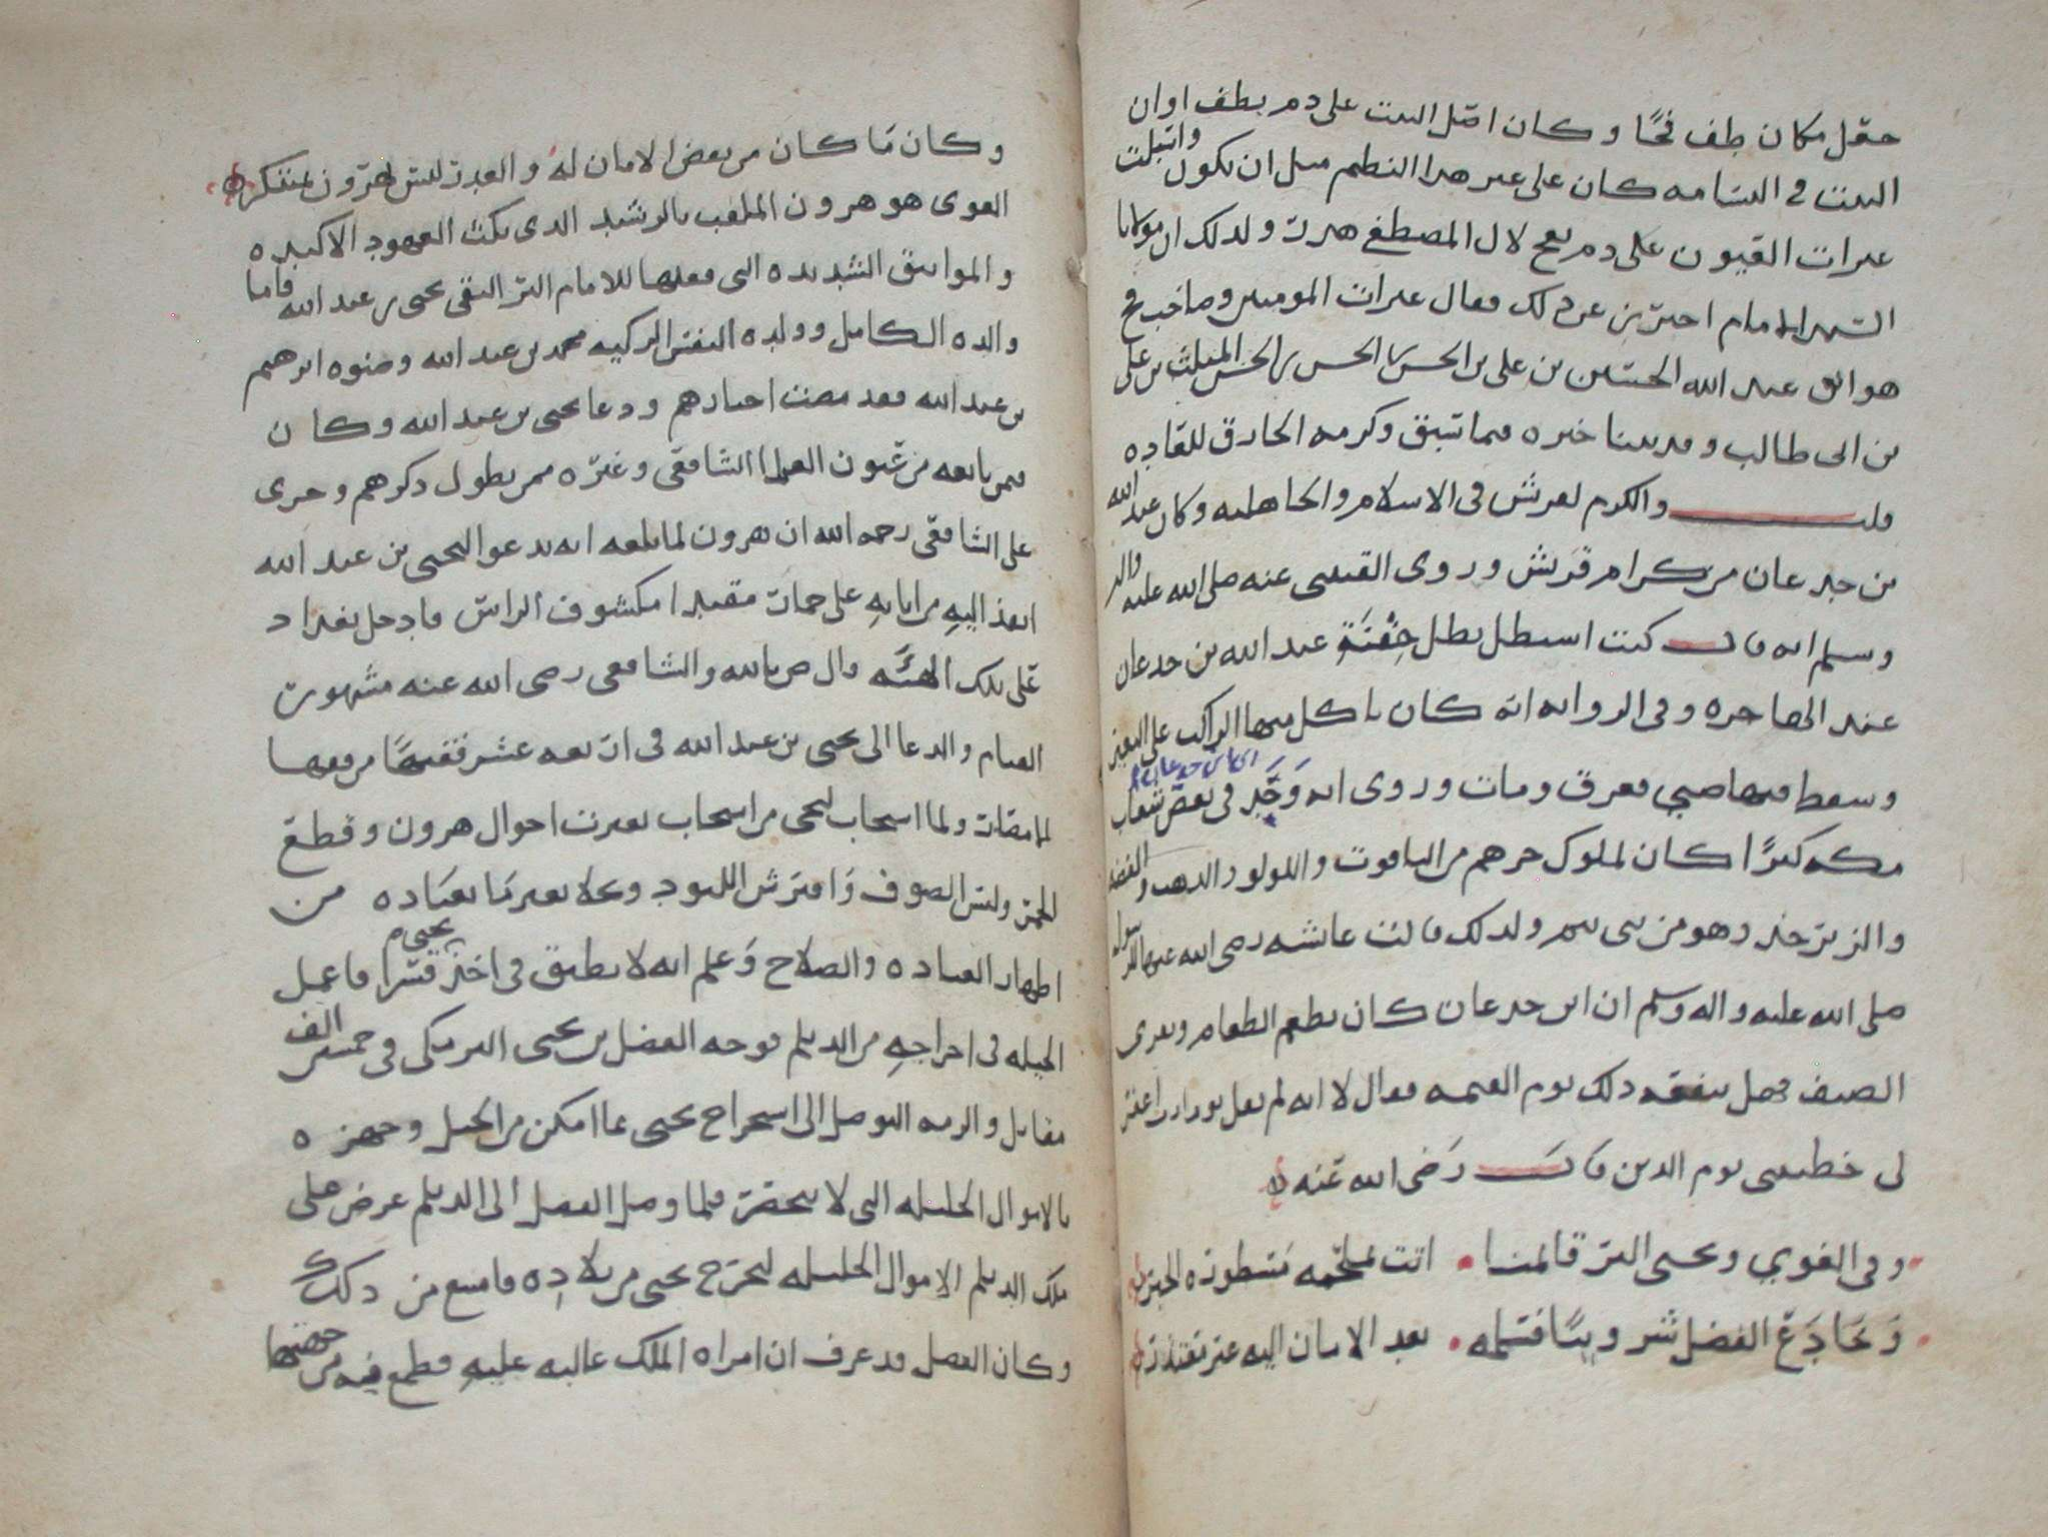 حعل مكان طف فخًا وكان اصل البيت على دم بطف اوان
البيت في البسامه كان على غير هذا النظم مثل ان يكون واسبلت
عبرات القيون على دم بفخ لال المصطفى هدرت ولذلك ان مولانا
الامام احترز عن ذلك فقال عبرات المومنين وصاحب فخ
هو ابو عبد الله الحسين بن علي بن الحسن بن الحسن بن الحسن المثلث بن علي
بن ابي طالب وقد بينا خبره فيما سبق وكرمه الخارق للعاده
قلت والكرم لقريش في الاسلام والجاهليه وكان عبد الله
بن جدعان من كرام قريش وروى القتيبي عنه صلى الله عليه واله
وسلم انه قال كنت استظل بظل جفنة عبد الله بن جدعان
عند الهاجره وفي الروايه انه كان ياكل منها الراكب على البعير
وسقط فيها صبي فغرق ومات وروى انه وجد في بعض شعاب
اي ابن جدعان
مكه كنزًا كان لملوك جرهم من الياقوت واللولو والذهب والفضه
والزبرجد وهو من بني تيم ولذلك قالت عائشه رضي الله عنها لرسول
صلى الله عليه واله وسلم ان ابن جدعان كان يطعم الطعام ويقري
الضيف فهل ينفعه ذلك يوم القيمه فقال لا انه لم يقل يوما رب اغفر
لي خطيئتي يوم الدين قال رضي الله عنه
وفي الغوي ويحيى البر قالمنا اتت مسطوره الحبر
وخادع الفضل شروينًا فسلمه بعد الامان اليه غير معتذر
وكان ما كان من بعض الامان له والغدر ليس لهرون بمبتكر
الغوي هو هرون الملقب بالرشيد الذي نكث العهود الاكيده
والمواثيق الشديده التي فعلها للامام البر التقي يحيى بن عبد الله فاما
والده الكامل وولده النفس الزكيه محمد بن عبد الله وصنوه ابرهيم
بن عبد الله فقد مضت اخبارهم ودعا يحيى بن عبد الله وكان
فيمن بايعه من عيون العلما الشافعي وغيره ممن يطول ذكرهم وجرى
على الشافعي رحمه الله ان هرون لما بلغه انه يدعو اليحيى بن عبد الله
انفذ اليه من اتابه على حمار مقيدا مكشوف الراس فادخل بغداد
على تلك الهيئه قال ص بالله والشافعي رضي الله عنه مشهور
القيام والدعا الى يحيى بن عبد الله في اربعه عشر فقيهًا من فقها
لما مقات ولما استجاب ليحيى من استجاب تغيرت احوال هرون وقطع
الخمر ولبس الصوف وافترش اللبود وتحلا بغير ما يعتاده من
اظهار العباده والصلاح وعلم انه لا يطيق في اخذ يحيى قسرا فاعمل
الحيله في اخراجه من الديلم فوجه الفضل بن يحيى البرمكي في خمسين الف
مقاتل والزمه التوصل الى استخراج يحيى بما امكن من الحيل وجهزه
بالاموال الجليله التي لا تنحصر فلما وصل الفضل الى الديلم عرض على
ملك الديلم الاموال الجليله ليخرج يحيى من بلاده فامتنع من ذلك
وكان الفضل قد عرف ان امراه الملك غالبه عليه فطمع فيه من جهتها